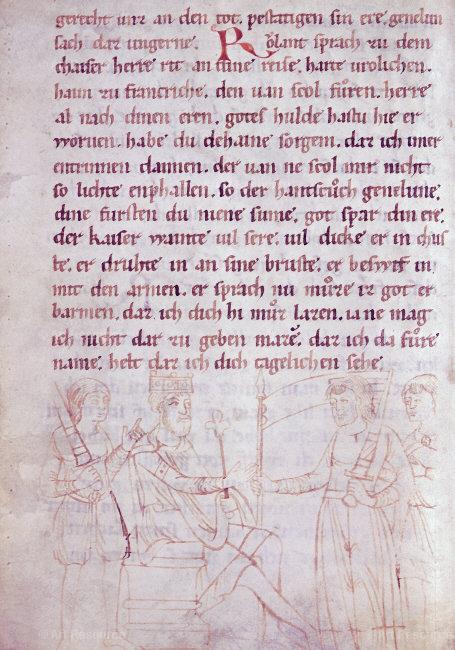 gerecht unz an den tot. pestatigen sin ere. genelun
sach daz ungerne. Růlant sprach zu dem
chaiser herre rit an dine reise. harte urolichen.
haim zu francriche. den uan scol ich fůren. herre
al nach dinen eren. gotes hulde hastu hie er
woruen. habe du dehaine sorgem. daz ich imer
entrinnen dannen. der uan ne scol mir nicht
so lichte enphallen. so der hantscůch genelune.
dine fursten du niene sume. got spar din ere.
der kaiser wainte uil sere. uil dicke er in chus
te. er druhte in an sine bruste. er beswief in
mit den armen. er sprach nu můze iz got er
barmen. daz ich dich hi můz lazen. ia ne mag
ich nicht daz zu geben mazē. daz ich da fure
name. helt daz ich dich tagelichen sehe.